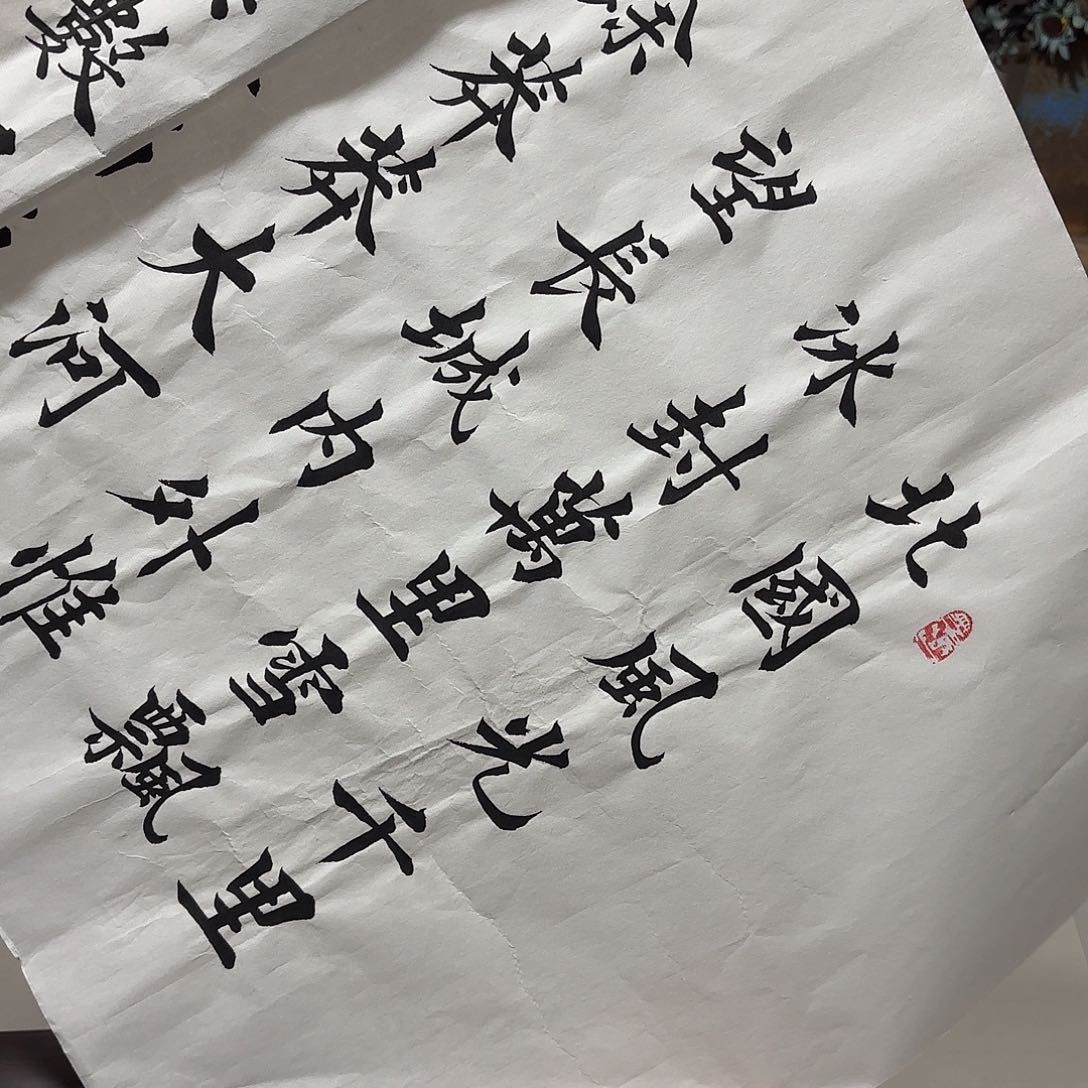 北國風光千里
冰封萬里雪飄
望長城内外惟
餘莽莽大河
數